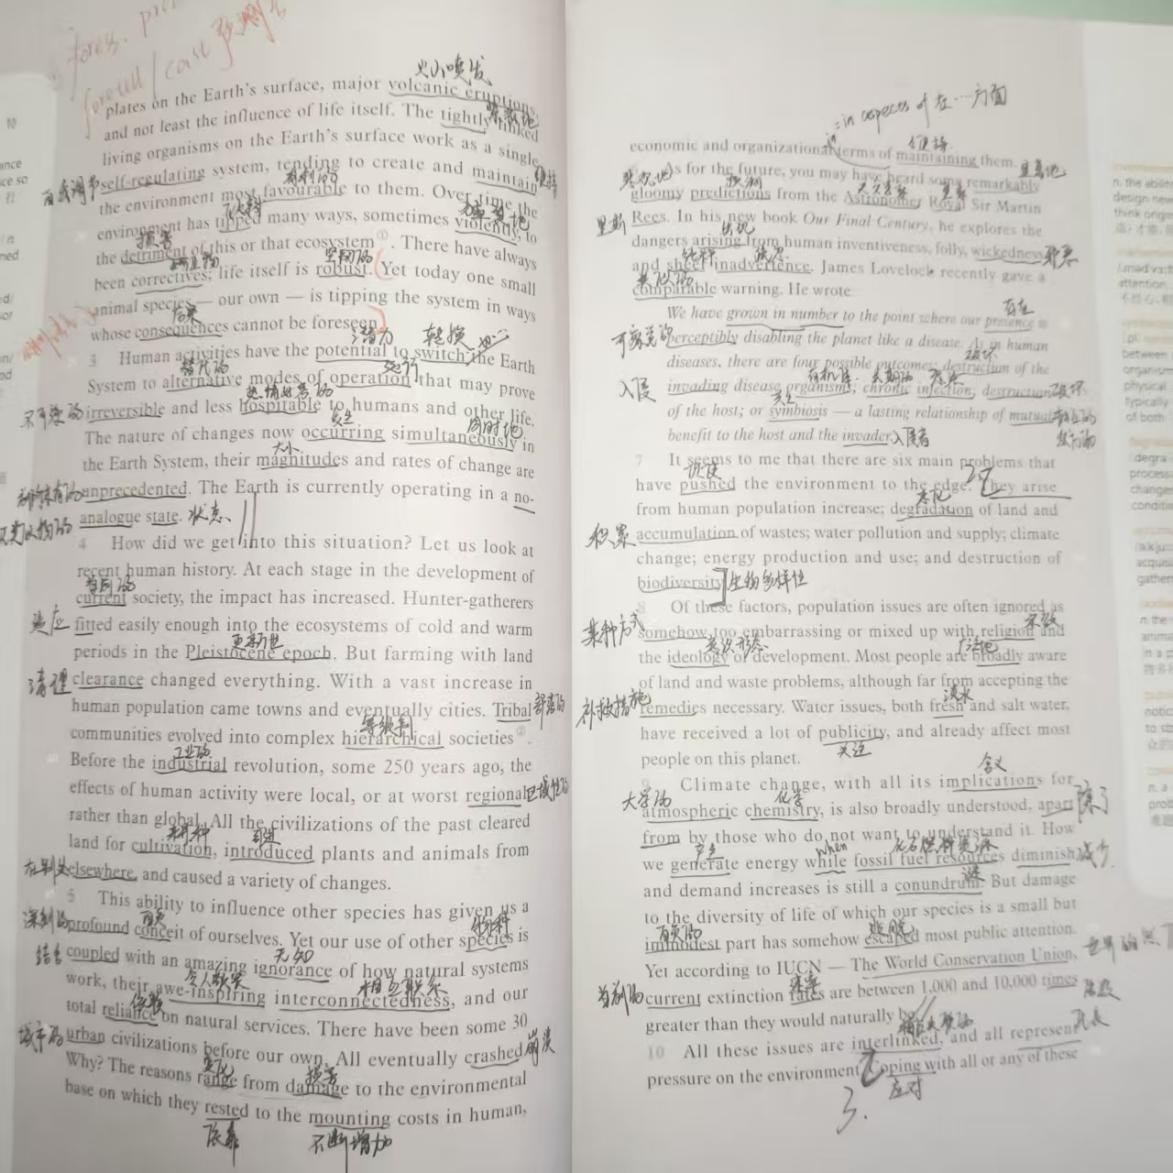 foretell / cast 预测
火山喷发
plates on the Earth's surface, major volcanic eruptions,
and not least the influence of life itself. The tightly linked
living organisms on the Earth's surface work as a single
自我调节 self-regulating system, tending to create and maintain
the environment most favourable to them. Over time the
environment has tipped many ways, sometimes violently, to
损害
the detriment of this or that ecosystem①. There have always
been correctives; life itself is robust. Yet today one small
animal species — our own — is tipping the system in ways
后果
whose consequences cannot be foreseen.
潜力 转换
3 Human activities have the potential to switch the Earth
替代的 运行
System to alternative modes of operation that may prove
热情好客的
不可逆的 irreversible and less hospitable to humans and other life.
发生 同时地
The nature of changes now occurring simultaneously in
大小
the Earth System, their magnitudes and rates of change are
unprecedented. The Earth is currently operating in a no-
analogue state. 状态
4 How did we get into this situation? Let us look at
recent human history. At each stage in the development of
当前的
current society, the impact has increased. Hunter-gatherers
适应 fitted easily enough into the ecosystems of cold and warm
更新世
periods in the Pleistocene epoch. But farming with land
清理 clearance changed everything. With a vast increase in
human population came towns and eventually cities. Tribal 部落的
等级制
communities evolved into complex hierarchical societies②.
工业的
Before the industrial revolution, some 250 years ago, the
effects of human activity were local, or at worst regional 区域性的
rather than global. All the civilizations of the past cleared
耕种 引进
land for cultivation, introduced plants and animals from
在别处 elsewhere, and caused a variety of changes.
5 This ability to influence other species has given us a
深刻的 自负 物种
profound conceit of ourselves. Yet our use of other species is
结合 无知
coupled with an amazing ignorance of how natural systems
令人敬畏 相互联系
work, their awe-inspiring interconnectedness, and our
依赖
total reliance on natural services. There have been some 30
城市的 urban civilizations before our own. All eventually crashed 崩溃
变化 损害
Why? The reasons range from damage to the environmental
base on which they rested to the mounting costs in human,
依靠 不断增加
= in aspects of 在…方面
in
维持
economic and organizational terms of maintaining them.
显著地
As for the future, you may have heard some remarkably
悲观地 预测 天文学家 皇家
gloomy predictions from the Astronomer Royal Sir Martin
里斯 Rees. In his new book Our Final Century, he explores the
出现
dangers arising from human inventiveness, folly, wickedness 邪恶
纯粹 疏忽
and sheer inadvertence. James Lovelock recently gave a
类似的
comparable warning. He wrote
存在
We have grown in number to the point where our presence is
可察觉的 perceptibly disabling the planet like a disease. As in human
破坏
diseases, there are four possible outcomes: destruction of the
有机体 长期的 感染
入侵 invading disease organisms; chronic infection; destruction 破坏
共生
of the host; or symbiosis — a lasting relationship of mutual 相互的
benefit to the host and the invader. 入侵者
7 It seems to me that there are six main problems that
have pushed the environment to the edge. They arise
恶化
from human population increase; degradation of land and
积累 accumulation of wastes; water pollution and supply; climate
change; energy production and use; and destruction of
biodiversity. 生物多样性
8 Of these factors, population issues are often ignored as
某种方式 宗教
somehow too embarrassing or mixed up with religion and
意识形态 广泛地
the ideology of development. Most people are broadly aware
of land and waste problems, although far from accepting the
补救措施 淡水
remedies necessary. Water issues, both fresh and salt water,
have received a lot of publicity, and already affect most
关注
people on this planet.
含义
9 Climate change, with all its implications for
大气的 化学
atmospheric chemistry, is also broadly understood, apart 除了
from by those who do not want to understand it. How
产生 when 化石燃料资源
we generate energy while fossil fuel resources diminish 减少
谜
and demand increases is still a conundrum. But damage
to the diversity of life of which our species is a small but
自负的 逃脱
immodest part has somehow escaped most public attention.
Yet according to IUCN — The World Conservation Union,
当前的 current extinction rates are between 1,000 and 10,000 times
greater than they would naturally be.
10 All these issues are interlinked, and all represent 代表
pressure on the environment. Coping with all or any of these
应对
3.